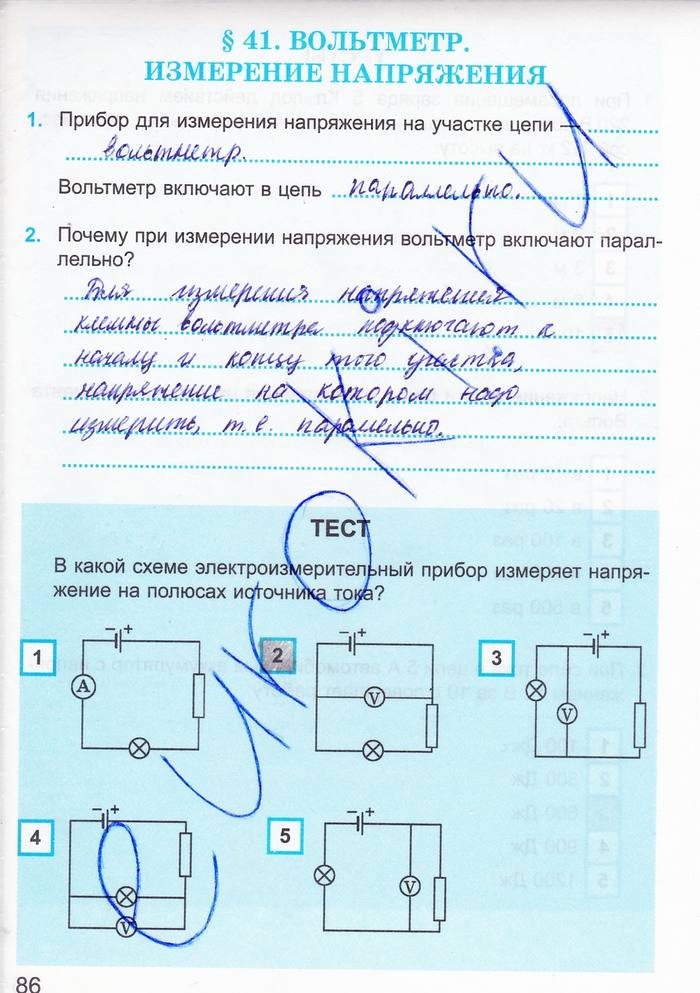 § 41. ВОЛЬТМЕТР.
ИЗМЕРЕНИЕ НАПРЯЖЕНИЯ
1. Прибор для измерения напряжения на участке цепи —
вольтметр.
Вольтметр включают в цепь параллельно.
2. Почему при измерении напряжения вольтметр включают парал-
лельно?
Для измерения напряжения
клеммы вольтметра подключают к
началу и концу того участка,
напряжение на котором надо
измерить, т.е. параллельно.
ТЕСТ
В какой схеме электроизмерительный прибор измеряет напря-
жение на полюсах источника тока?
1
− +
A
2
− +
V
3
− +
V
4
− +
V
5
− +
V
86